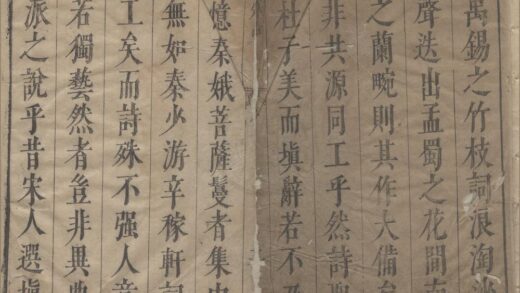 禹錫之竹枝詞浪淘沙
聲迭出孟蜀之花間南
之蘭畹則其作大備
非共源同工乎然詩
杜子美而填辭若不
憶秦娥菩薩鬘者集中
無如秦少游辛稼軒詞
工矣而詩殊不强人意
若獨藝然者豈非異
派之說乎昔宋人選填